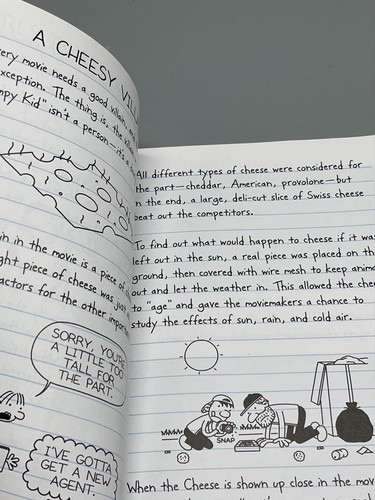 A CHEESY
ery movie needs a good villain, and
exception. The thing is, the
mpy Kid" isn't a person—it's a
in in the movie is a piece of
ght piece of cheese was just
actors for the other important
SORRY, YOU'RE
A LITTLE TOO
TALL FOR
THE PART.
I'VE GOTTA
GET A NEW
AGENT.
All different types of cheese were considered for
the part—cheddar, American, provolone—but
in the end, a large, deli-cut slice of Swiss cheese
beat out the competitors.
To find out what would happen to cheese if it was
left out in the sun, a real piece was placed on th
ground, then covered with wire mesh to keep anima
out and let the weather in. This allowed the chee
to "age" and gave the moviemakers a chance to
study the effects of sun, rain, and cold air.
SNAP
When the Cheese is shown up close in the mov